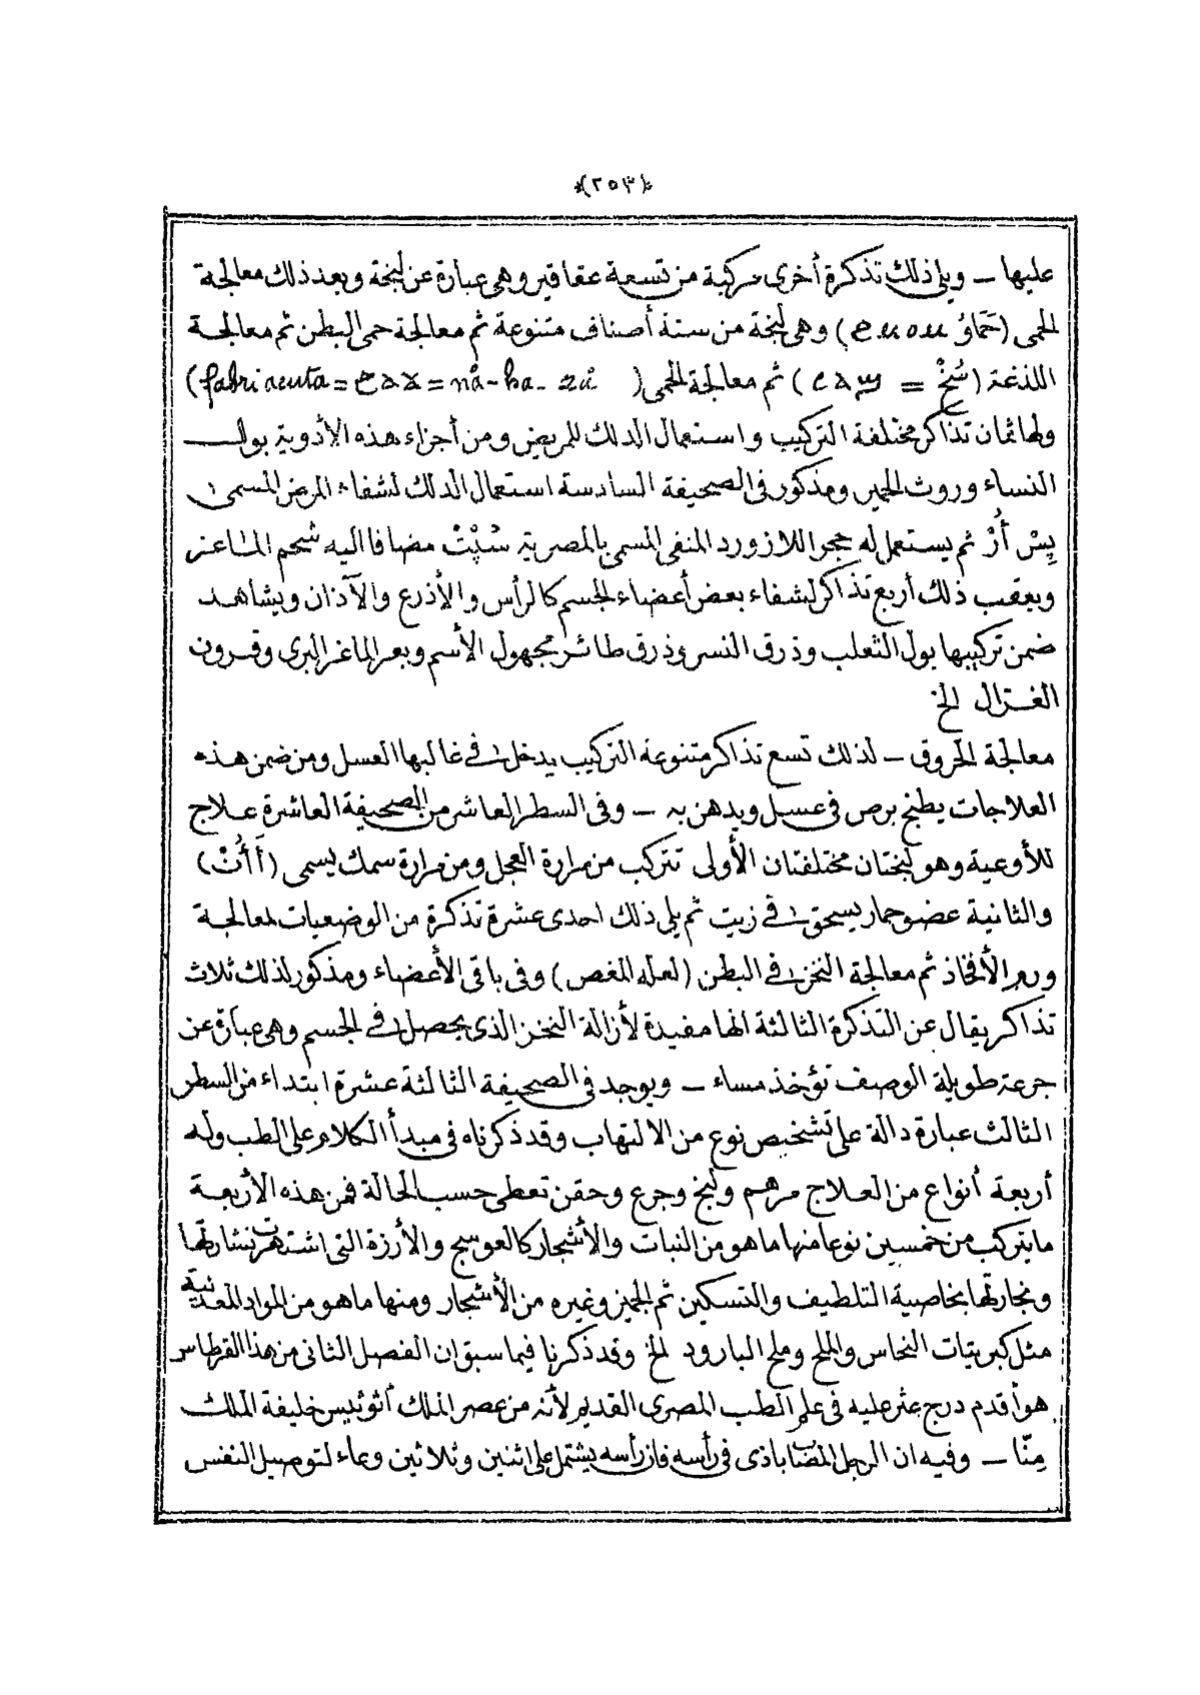 ﴿٢٥٣﴾
عليها — ويلى ذلك تذكرة أخرى مركبة من تسعة عقاقير وهى عبارة عن لبخة وبعد ذلك معالجة
الحمى (حَمَاوُ) وهى لبخة من ستة أصناف متنوعة ثم معالجة حمى البطن ثم معالجة
اللذغة (سُخْ =) ثم معالجة الحمى (fabri acuta = = nå-ha-)
ولها ثمان تذاكر مختلفة التركيب واستعمال الدلك للمريض ومن أجزاء هذه الأدوية بول
النساء وروث الحمير ومذكور فى الصحيفة السادسة استعمال الدلك لشفاء المرض المسمى
بِسْ أُرْ ثم يستعمل له حجر اللازورد المنفى المسمى بالمصرية سْپْتْ مضافا اليه شحم الماعز
وبعقب ذلك أربع تذاكر لشفاء بعض أعضاء الجسم كالرأس والأذرع والآذان ويشاهد
ضمن تركيبها بول الثعلب وذرق النسر وذرق طائر مجهول الأسم وبعر الماغز البرى وقرون
الغزال الخ
معالجة الحروق — لذلك تسع تذاكر متنوعة التركيب يدخل فى غالبها العسل ومن ضمن هذه
العلاجات يطبخ برص فى عسل ويدهن به — وفى السطر العاشر من الصحيفة العاشرة علاج
للأوعية وهو لبختان مختلفتان الأولى تتركب من مرارة العجل ومن مرارة سمك يسمى (أَأُتْ)
والثانية عضو حمار يسحق فى زيت ثم يلى ذلك احدى عشرة تذكرة من الوضعيات لمعالجة
ورم الأفخاذ ثم معالجة النخز فى البطن (لعله المغص) وفى باقى الأعضاء ومذكور لذلك ثلاث
تذاكر يقال عن التذكرة الثالثة انها مفيدة لأزالة النخز الذى يحصل فى الجسم وهى عبارة عن
جرعة طويلة الوصف تؤخذ مساء — ويوجد فى الصحيفة الثالثة عشرة ابتداء من السطر
الثالث عبارة دالة على تشخيص نوع من الالتهاب وقد ذكرناه فى مبدأ الكلام على الطب وله
أربعة أنواع من العلاج مرهم ولبخ وجرع وحقن تعطى حسب الحالة فمن هذه الأربعة
مايتركب من خمسين نوعا منها ما هو من النبات والأشجار كالعوسج والأرزة التى اشتهرت نشارتها
ونجارتها بخاصية التلطيف والتسكين ثم الجميز وغيره من الأشجار ومنها ما هو من المواد المعدنية
مثل كبريتات النحاس والملح وملح البارود الخ وقد ذكرنا فيما سبق ان الفصل الثانى من هذا القرطاس
هو أقدم درج عثر عليه فى علم الطب المصرى القديم لأنه من عصر الملك أثوثيس خليفة الملك
مِنّا — وفيه ان الرجل المصاب باذى فى رأسه فان رأسه يشتمل على اثنين وثلاثين وعاء لتوصيل النفس